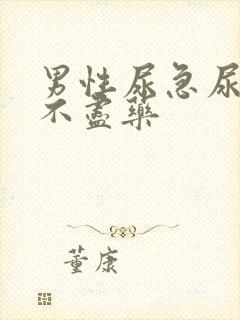 男性尿急尿
不盡藥
董康